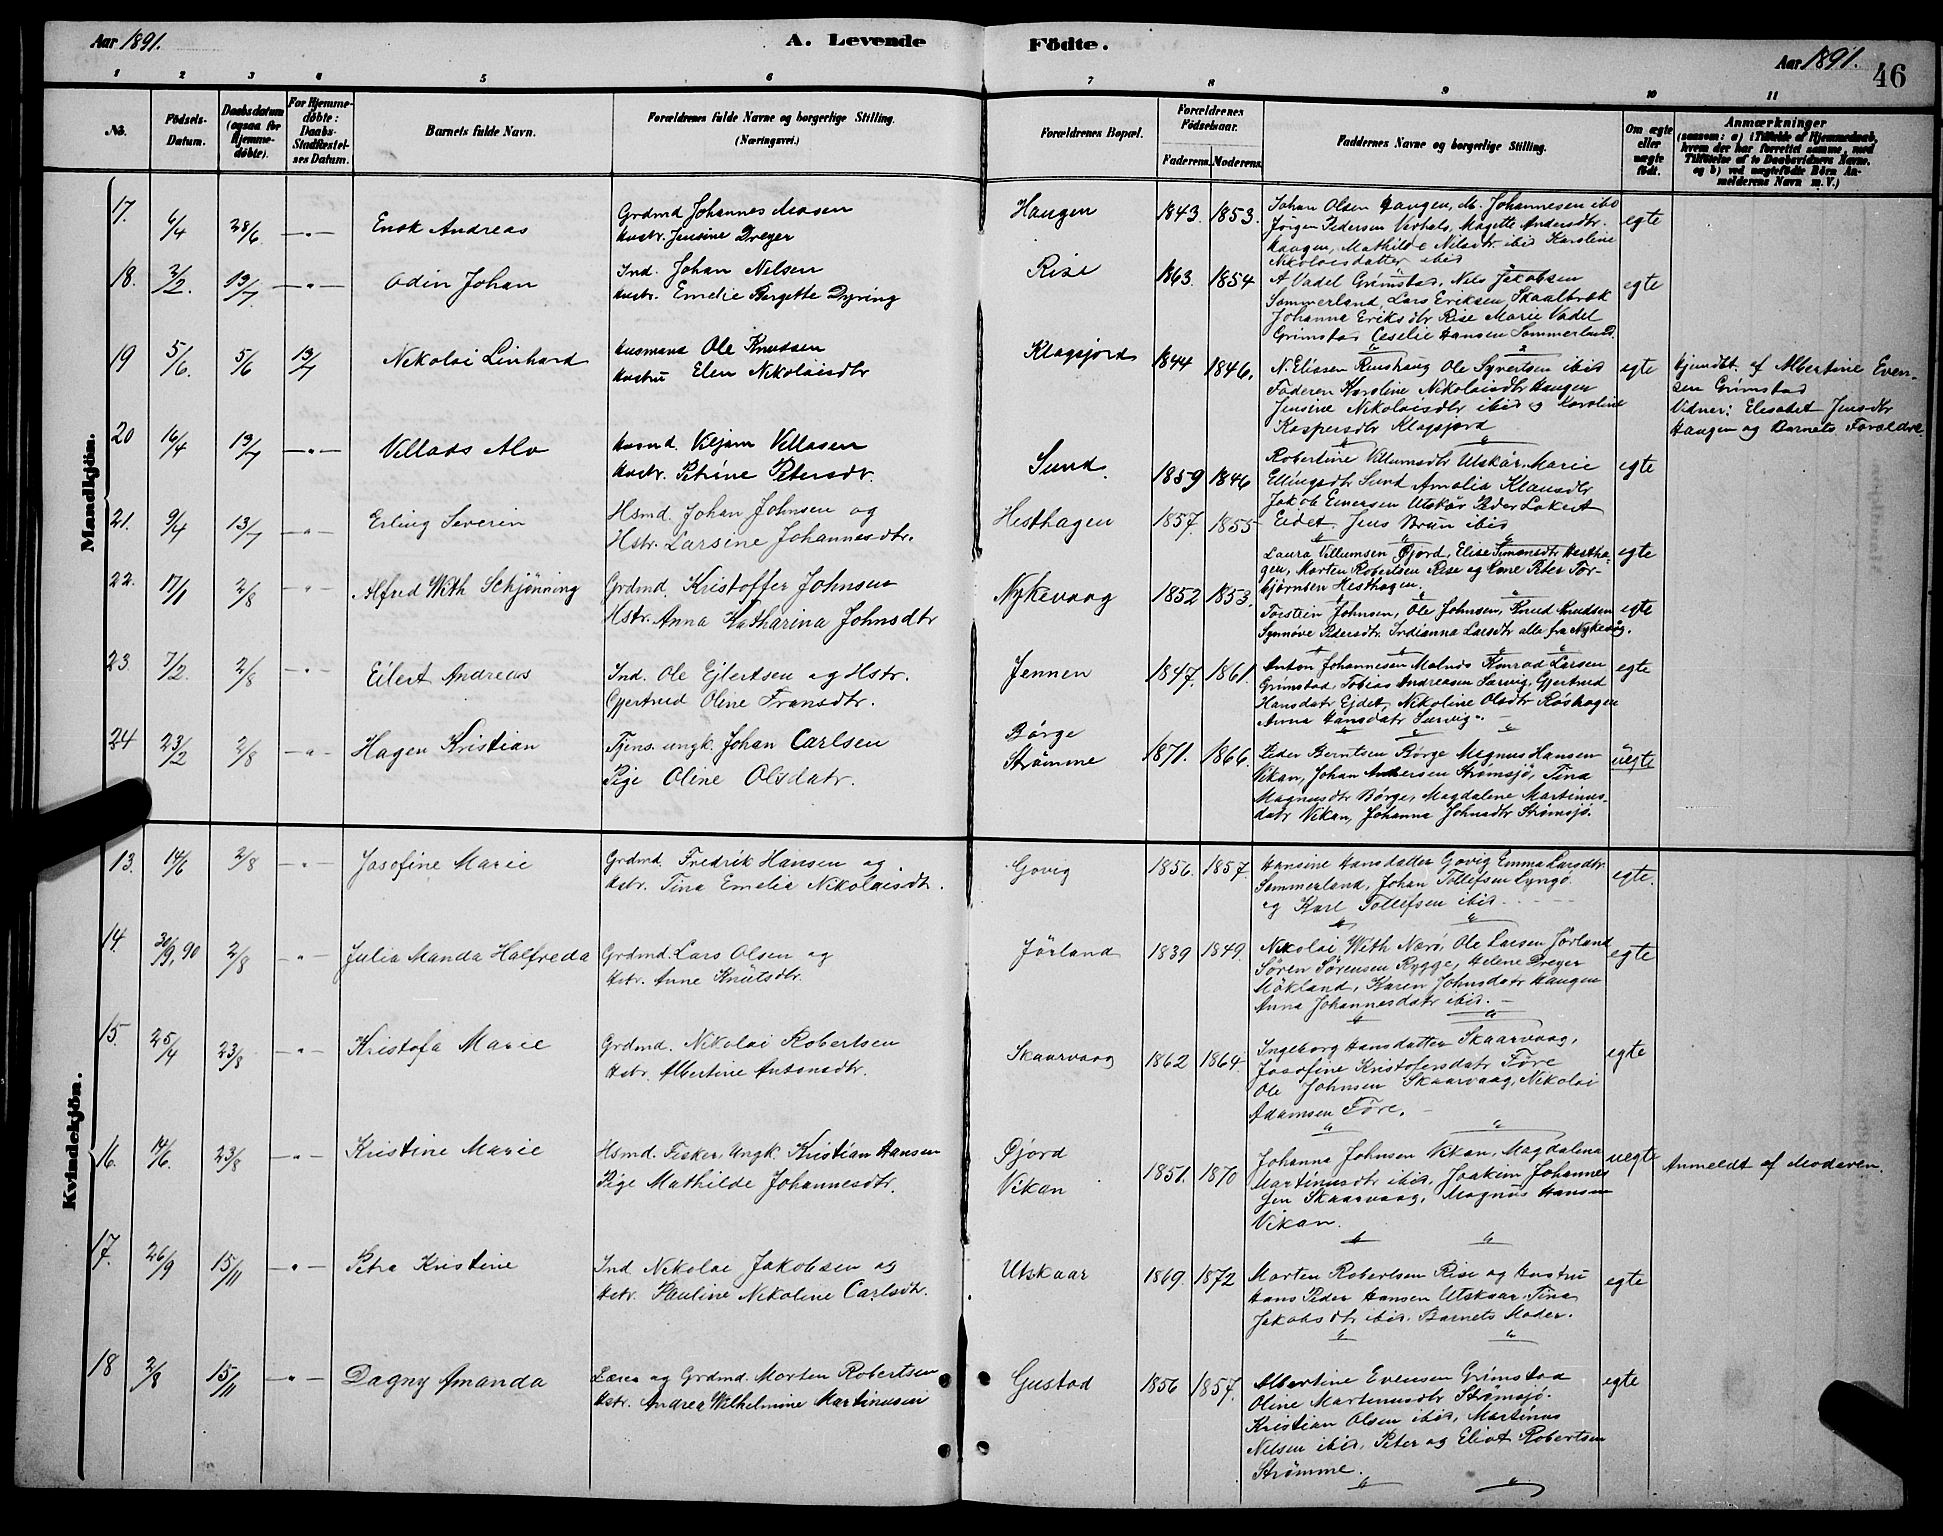 Aar 1891.
A. Levende Födte.
Aar 1891.
46
1 2 3 4 5 6 7 8 9 10 11
No.
Födsels-Datum.
Daabsdatum (ogsaa for Hjemme-döbte).
For Hjemme-döbte: Daabs-Stadfæstel-ses Datum.
Barnets fulde Navn.
Forældrenes fulde Navne og borgerlige Stilling. (Næringsvei.)
Forældrenes Bopæl.
Forældrenes Födselsaar.
Faderens. Moderens.
Faddernes Navne og borgerlige Stilling.
Om ægte eller uægte födt.
Anmærkninger
(saasom: a) i Tilfælde af Hjemmedaab,
hvem der har forrettet samme, med
Tilföielse af to Daabsvidners Navne.
og b) ved uægtefödte Börn An-
melderens Navn m. V.)
Mandkjön.
17. 6/4 28/6 — " — Enok Andreas
Grdmd Johannes Aasen
Hustr. Jensine Dreyer
Haugen 1843. 1853.
Johan Olsen Haugen, M. Johannesen ibid
Jørgen Pedersen Verhals, Magette Andersdtr.
Haugen, Mathilde Nilsdtr ibid Karoline
Nikolaisdatter ibid
egte
18. 2/2. 19/7 — " — Odin Johan
Ind. Johan Nelsen
Hustr. Emelie Bergette Dyring
Rise 1863. 1854
A Vadel Grimstad, Nils Jakobsen
Sommerland, Lars Eriksen Skaalbrek
Johanna Eriksdtr Rise Marie Vadel
Grimstad Ceselie Hansen Sommerland.
egte
19 5/6. 5/6 13/7 Nikolai Linhard
Husmand Ole Knutsen
Hustru Elen Nikolaisdtr
Klagsjord 1844 1846.
N. Eliasen Runshaug Ole Syvertsen ibid
Faderen Karoline Nikolaisdtr Haugen
Jensine Nikolaisdtr ibid og Karoline
Kaspersdtr Klagsjord
egte
Hjemdbt. af Albertine Even-
sen Grimstad
Vidner: Elesabet Jensdtr
Haugen og Barnets Forældre.
20 16/4 19/7 — " — Villads Alv
Husmd. Viljam Villasen
Hustr. Petrine Petersdr.
Sund. 1859 1846
Robertine Villumsdtr Utskår, Marie
Ellingsdtr Sund Amalia Klausdtr
Jakob Einersen Utskår Peder Lokert
Eidet. Jens Brun ibid
egte
21. 9/4 13/7 — " — Erling Severin
Hsmd. Johan Johnsen og
Hstr. Larsine Johannesdtr.
Hesthagen 1857. 1855
Laura Villumsen Øjord, Elise Simonsdtr Hestha-
gen, Morten Robertsen Rise og Kone Peter Tor-
bjørnsen Hesthagen.
egte
22. 17/1 2/8 — " — Alfred With Schjønning
Grdmd. Kristoffer Johnsen
Hstr. Anna Katharina Johnsdtr
Nykevaag 1852 1853.
Torstein Johnsen, Ole Johnsen, Knud Knudsen
Synnøve Pedersdtr. Indianna Larsdtr alle fra Nykevåg.
egte
23. 7/2. 2/8 — " — Eilert Andreas
Ind. Ole Ejlertsen og Hstr.
Gjertrud Oline Fransdtr.
Jennen 1847. 1861.
Anton Johannesen Malnes Konrad Larsen
Grimstad, Tobias Andreasen Sørvig, Gjertrud
Hansdatr Ejdet, Nikoline Olsdtr Røshagen
Anna Hansdatr Sørvig.
egte
24 23/2 2/8 — " — Hagen Kristian
Tjens. ungk. Johan Carlsen
Pige Oline Olsdatr.
Børge
Strømme
1871. 1866.
Peder Berntsen Børge Magnus Hansen
Vikan, Johan Andersen Strømsjø, Tina
Magnusdtr Børge, Magdalene Martinus-
datr Vikan, Johanna Johnsdtr Strømsjø.
uegte
Kvindekjön.
13. 14/6 2/8 — " — Josofine Marie
Grdmd. Fredrik Hansen og
Hstr. Tina Emelia Nikolaisdtr.
Govig 1856. 1857.
Hansine Hansdatter Govig Emma Larsdtr.
Sommerland, Johan Tollefsen Lyngø.
og Karl Tollefsen ibid.
egte.
14. 30/9, 90 2/8 — " — Julia Manda Halfreda
Grdmd. Lars Olsen og
Hstr. Anne Knutsdtr.
Jørland 1839 1849.
Nikolai With Nærø, Ole Larsen Jørland
Søren Sørensen Rygge, Helene Dreyer
Møkland, Karen Johnsdatr Haugen
Anna Johannesdatr ibid. —
egte
15. 25/4 23/8 — " — Kristofa Marie
Grdmd. Nikolai Robertsen
Hstr. Albertine Antonsdtr.
Skaarvaag 1862 1864
Ingeborg Hansdatter Skaarvaag,
Josofine Kristofersdatr Føre
Ole Johnsen Skaarvaag, Nikolai
Adamsen Føre. —
egte
16. 14/6. 23/8 — " — Kristine Marie
Hsmd. Fisker, Ungk Kristian Hansen
Pige Mathilde Johannesdtr.
Øjord
Vikan
1851. 1870
Johanna Johnsen Vikan, Magdalena
Martinusdtr ibid, Joakim Johannes
sen Skaarvaag, Magnus Hansen
Vikan.
uegte
Anmeldt af Moderen.
17. 26/9 15/11 — " — Petra Kristine
Ind Nikolai Jakobsen og
Hstr. Pauline Nikoline Carlsdtr.
Utskaar 1869. 1872
Morten Robertsen Rise og Hustru
Hans Peder Hansen Utskaar. Tina
Jakobsdtr ibid. Barnets Moder.
egte
18 2/8 15/11 — " — Dagny Amanda
Lærer og Grdmd. Morten Robertsen
Hstr. Andrea Wilhelmine Martinusen
Gustad 1856 1857.
Albertine Evensen Grimstad
Oline Martinusdtr Strømsjø.
Kristian Olsen ibid, Martinus
Nelsen ibid, Peter og Eliot Robertsen
Strømme.
egte